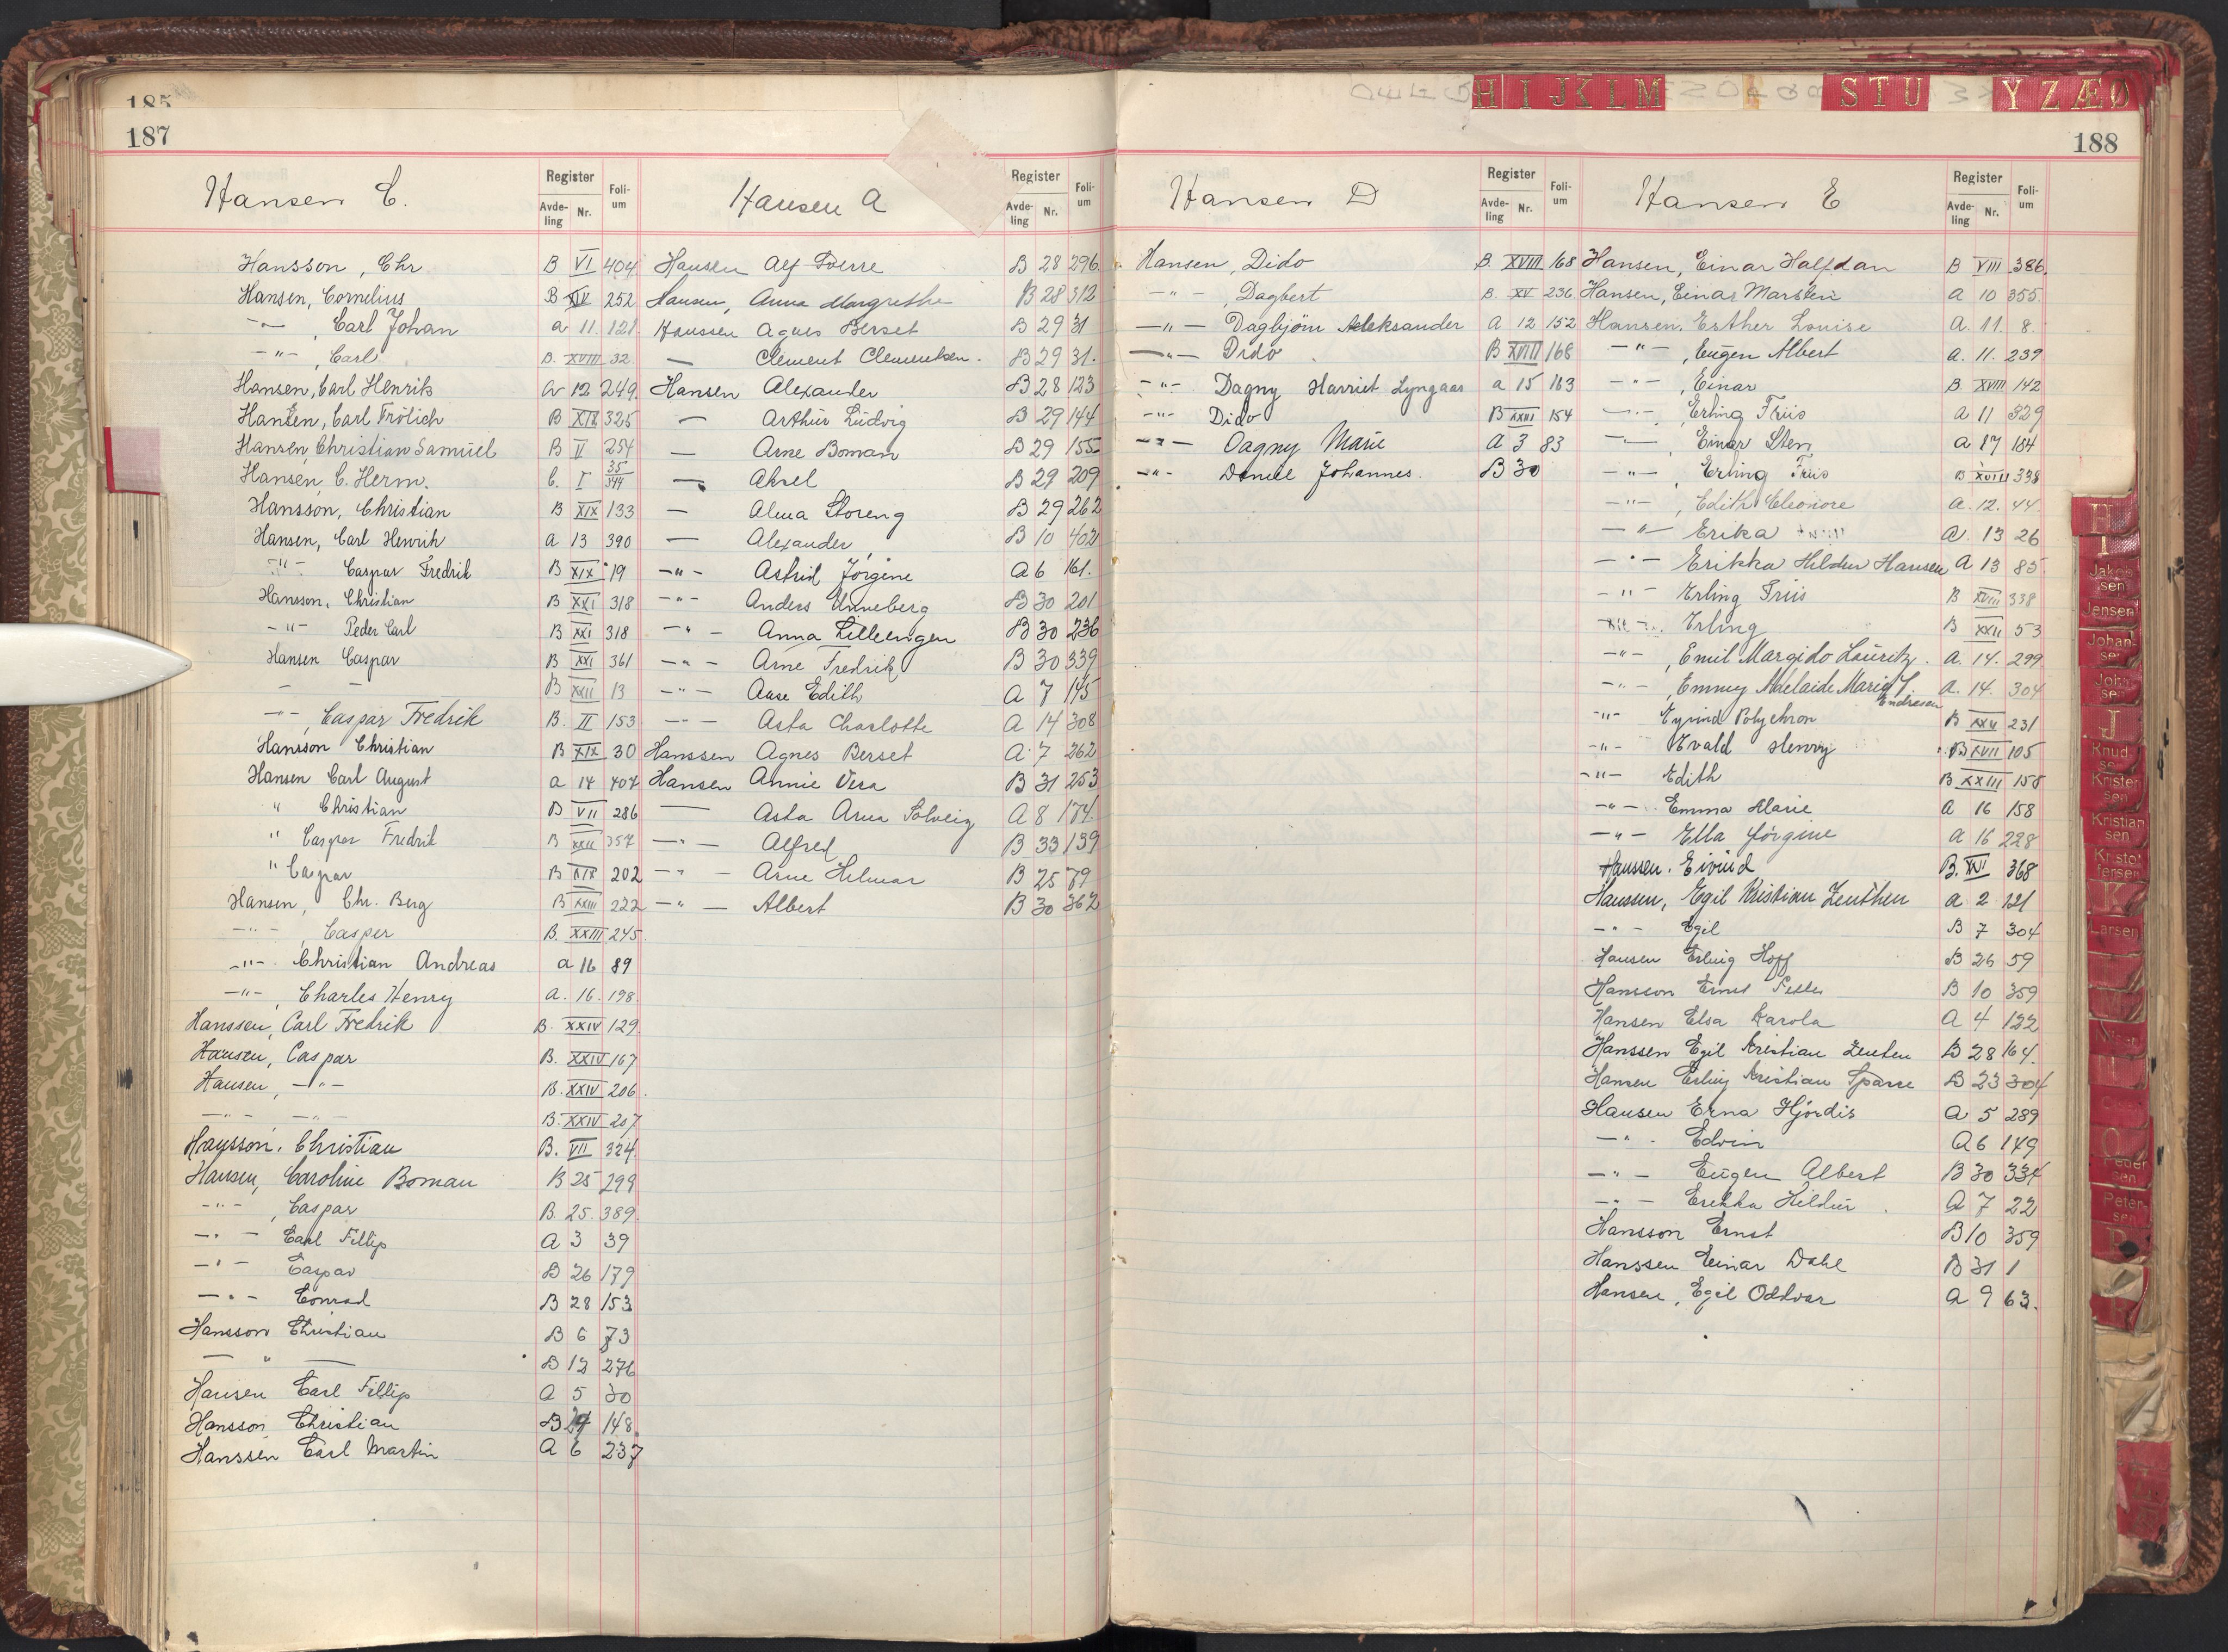 185
187
Hansen C.
Register
Avde-
ling
Nr.
Foli-
um
Hansson, Chr B VI 404
Hansen, Cornelius B XIV 252
-"- , Carl Johan a 11. 121
-"- , Carl. B. XVIII 32.
Hansen, Carl Henrik a 12 249.
Hansen, Carl Frölich B XIX 325
Hansen, Christian Samüel B V 254
Hansen, C. Herm. C. I 35/344
Hansson, Christian B XIX 133
Hansen, Carl Henrik a 13 390
-"- Caspar Fredrik B XIX 19
Hansson, Christian B XXI 318
-"- Peder Carl B XXI 318
Hansen Caspar B XXI 361
- - B XXII 13
-"- , Caspar Fredrik B. II 153
Hansson Christian B XIX 30
Hansen Carl August a 14 404
" Christian B VII 286
" Caspar Fredrik B XXII 357
" Caspar B XIX 202
Hansen, Chr. Berg B XXIII 222
-"- , Casper B. XXIII 245.
-"- Christian Andreas a 16 89
-"- , Charles Henry A. 16. 198.
Hanssen, Carl Fredrik B. XXIV 129.
Hansen, Caspar B. XXIV 167
Hansen, -"- B. XXIV 206.
-"- -"- B. XXIV 207
Hansson, Christian B. VII 324.
Hansen, Caroline Boman B 25 299
-"- , Caspar B. 25. 389.
-"- Carl Fillip A 3 39
-"- Caspar B 26 179
-"- Conrad B 28 153
Hansson Christian B 6 73
- " - B 12 276
Hansen Carl Fillip A 5 30
Hansson Christian B 148.
Hanssen Carl Martin A 6 237
Hansen A
Register
Avde-
ling
Nr.
Foli-
um
Hansen Alf Sverre B 28 296
Hansen, Anna Margrethe B 28 312
Hanssen Agnes Berset B 29 31
- Clement Clementsen. B 29 31.
Hansen Alexander B 28 123
- Arthur Ludvig B 29 144
- Arne Boman B 29 155
- Aksel B 29 209
- Alma Storeng B 29 262
- Alexander B 10 402
-"- Astrid Jørgine A 6 161.
-"- Anders Unneberg B 30 201
-"- Anna Lilleengen B 30 236
-"- Arne Fredrik B 30 339
-"- Aase Edith A 7 145
-"- Asta Charlotte A 14 308
Hanssen Agnes Berset A 7 262
Hansen Annie Vera B 31 253
- Asta Anna Solveig A 8 174.
-"- Alfred B 33 139
-"- Arne Helmar B 25 79
-"- Albert B 30 362
H I J K L M S T U Y Z Æ Ø
188
Hansen D
Register
Avde-
ling
Nr.
Foli-
um
Hansen, Dido B. XVIII 168
-"- , Dagbert B. XV 236
-"- Dagbjörn Aleksander A 12 152
-"- Dido B XVIII 168
-"- Dagny Harriet Lyngaas a 15 163
-"- Dido B XXII 154
-"- Dagny Marie A 3 83
-"- Daniel Johannes. B 30
Hansen E
Register
Avde-
ling
Nr.
Foli-
um
Hansen, Einar Halfdan B VIII 386.
Hansen, Einar Marstein a 10 355.
Hansen, Esther Louise A. 11. 8.
-"- , Eugen Albert A. 11. 239
-"- , Einar B XVIII 142
-"- , Erling Friis A 11 329
-"- , Einar Sten a 17 184
-"- , Erling Friis B XVIII 338
-"- , Edith Eleonore a. 12. 44.
-"- Erika A. 13 26
-"- Erikka Hildur Hansen A 13 85
-"- Erling Friis B XVIII 338
-"- Erling B XXII 53
-"- , Emil Margido Lauritz. A. 14. 299
-"- , Emmy Adelaide Marie f. Endresen A. 14. 304
-"- Eyvind Polychron B XXII 231
-"- Evald Henry B XVII 105
-"- Edith B XXIII 158
-"- Emma Marie A 16 158
-"- Ella Jørgine A 16 228
Hanssen. Eivind B. XVI 368
Hanssen, Egil Kristian Zenthen a 2 121
-"- Egil B 7 304
Hansen Erling Hoff B 26 59
Hansson Ernst B 10 359
Hansen Elsa Karola A 4 122
Hanssen Egil Kristian Zenten B 28 164.
Hansen Erling Kristian Sparre B 23 304
Hansen Erna Hjördis A 5 289
-"- Edvin A 6 149
-"- Eugen Albert B 30 334
-"- Erikka Hildur. A 7 22
Hansson Ernst B 10 359
Hanssen Einar Dahl B 31 1
Hansen, Egil Oddvar A 9 63.
H
I
Jakob
sen
Jensen
Johan-
sen
John
sen
J
Knud
sen
Krister
sen
Kristian
sen
Kristof
fersen
K
Larsen
Peder
sen
Peter-
sen